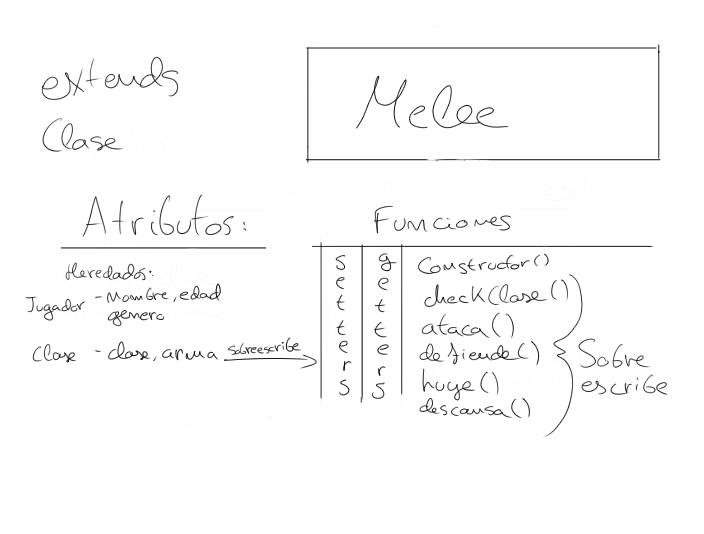 extends
Clase
Melee
Atributos:
Heredados:
Jugador - Nombre, edad
genero
Clase - clase, arma sobreescribe
Funciones
setters
getters
Constructor()
checkClase()
ataca()
defiende()
huye()
descansa()
Sobre
escribe